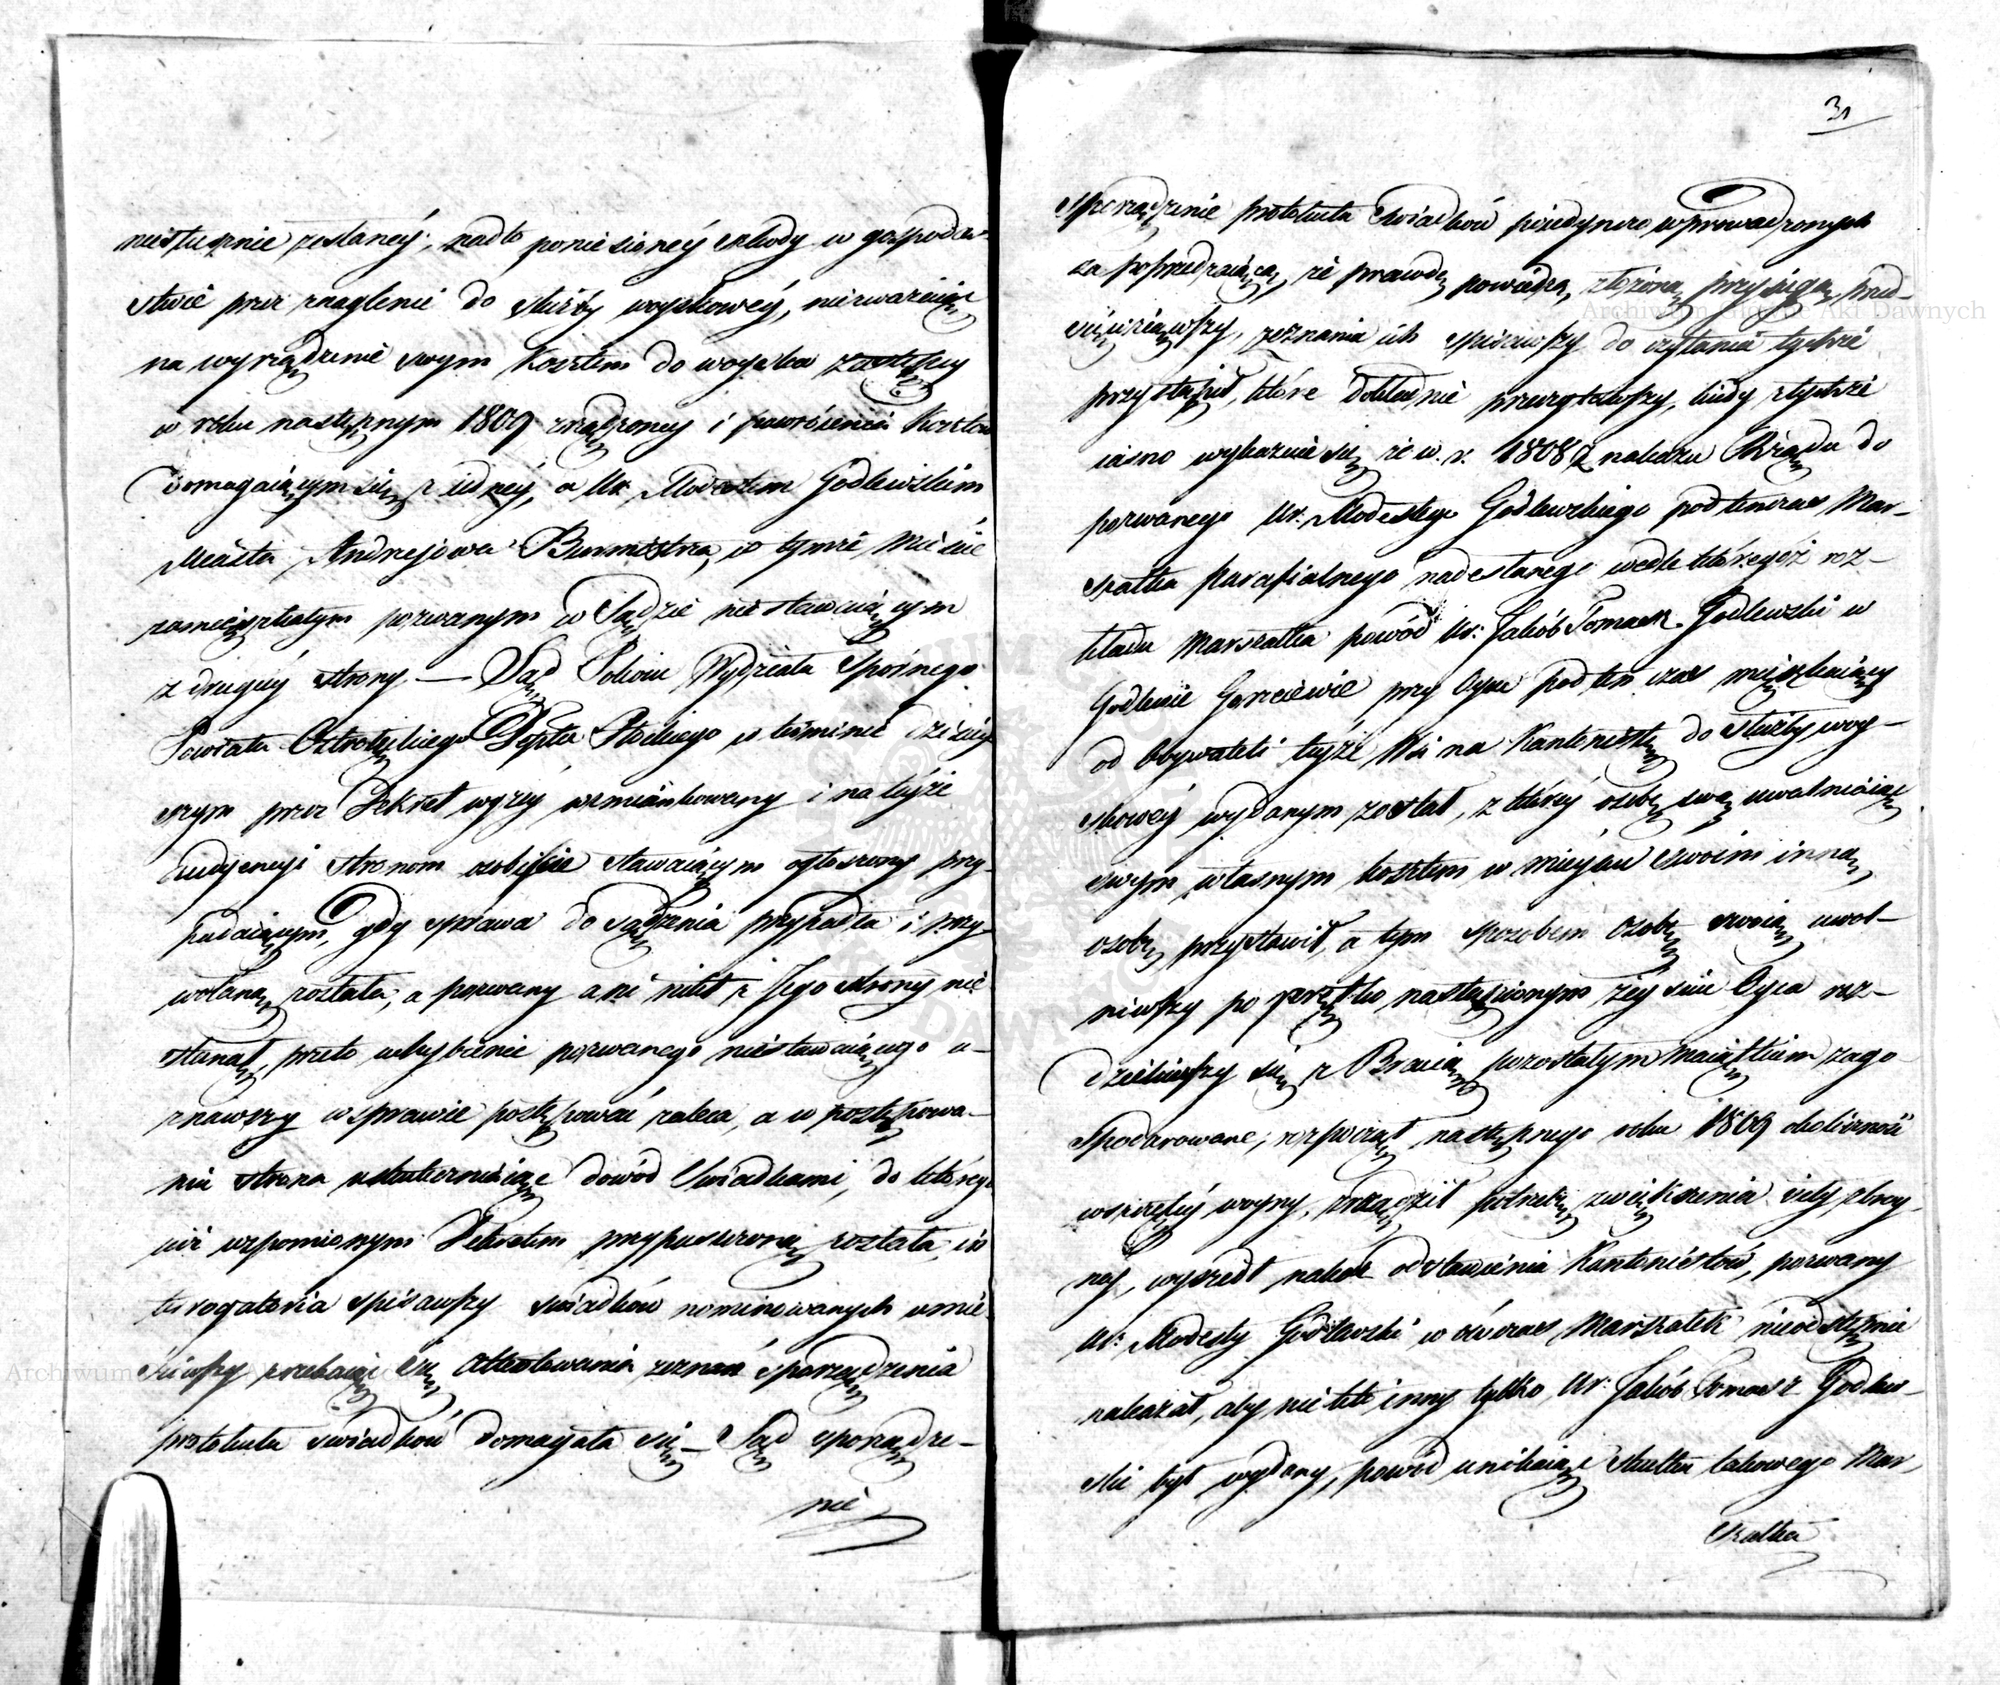 niesłusznie zesłanéy; nadto poniesionéy szkody w gospodar-
stwie przez znaglenie do służby woyskowéy, niezważaiąc
na wyrządzenie swym Kosztem do woyska zastępcy
w roku następnym 1809 zrządzoney i powrócenia Kosztów
domagaiącym się z iednéy, a Ur. Modestem Godlewskim
Miasta Andrzejowa Burmistrzą, w tymże Mieście
zamieszkałym pozwanym w Sądzie niestawaiącym
z drugiéy strony — Sąd Pokoiu Wydziału Spornego
Powiatu Ostrołęckiego Depttu Płockiego w terminie dzisiey-
szym przez Dekret wyżéy wzmiankowany i na téyże
audyencyi stronom osobiście stawaiącym ogłoszony przy-
padaiącym, gdy sprawa do sądzenia przypadła i przy-
wołaną została, a pozwany ani nikt z Jego strony nie
stanął, przeto uchybienie pozwanego niestawaiącego u-
znawszy w sprawie postępować zaleca, a w postępowa-
niu strona uskuteczniaiąc dowód Świadkami, do którego
iuż wspomionym Dekretem przypuszczoną została, in
terogatoria spisawszy świadków nominowanych umie-
ściwszy zrzekaiąc się attentowania zeznań sporządzenia
protokułu świadków domagała się — Sąd sporządze-
nie
31
Sporządzenie protokułu Świadków poiedynczo wprowadzonych
za poprzedzaiącą, że prawdę powiedzą, złożoną przysięgą, przed-
sięwziąwszy, zeznania ich spisawszy do czytania tychże
przystąpił, które dokładnie przeczytawszy, kiedy z tychże
iasno wykazuie się, że w r. 1808 z nakazu Rządu do
pozwanego Ur. Modestego Godlewskiego podtenczas Mar-
szałka Parafialnego nadesłanego wedle któregóż roz-
kładu Marszałka powód Ur: Jakób Tomasz Godlewski w
Godlewie Gorzeiewie przy Oycu pod ten czas mieszkaiący
od Obywateli téyże Wsi na Kantonistę do służby woy-
skowéy wydanym został, z któréy osobę swą uwalniaiąc
swym własnym kosztem w mieyscu swoim inną
osobę przystawił, a tym sposobem osobę swoią uwol-
niwszy po prędko nastąpionym zeyściu Oyca roz-
dzieliwszy się z Bracią pozostałym Maiątkiem zago
spodarowane; rozpoczął, następnego roku 1809 okoliczność
wszczętéy woyny, zrządził potrzebę zwiększenia siły zbroy-
néj, wyszedł nakaz odstawienia Kantonistów, pozwany
Ur: Modesty Godlewski w ówczas Marszałek nieodstępnie
nakazał, aby nie kto inny tylko Ur: Jakób Tomasz Godlew-
ski był wydany, powód unikaiąc skutku takowego Mar-
szałka
Archiwum Główne Akt Dawnych